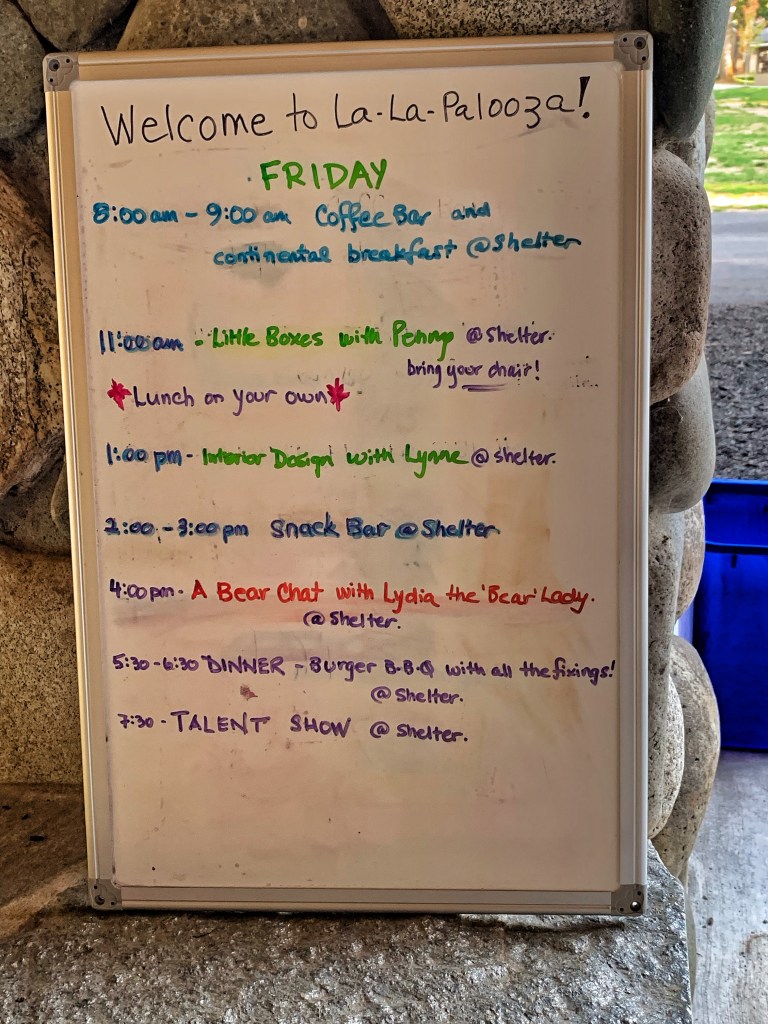 Welcome to La-La-Palooza!
FRIDAY
8:00 am - 9:00 am Coffee Bar and
continental breakfast @Shelter
11:00 am - Little Boxes with Penny @Shelter.
bring your chair!
Lunch on your own
1:00 pm - Interior Design with Lynne @ Shelter.
2:00 - 3:00 pm Snack Bar @ Shelter
4:00 pm - A Bear Chat with Lydia the 'Bear' Lady.
@ Shelter.
5:30 - 6:30 DINNER - Burger B-B-Q with all the fixings!
@ Shelter.
7:30 - TALENT SHOW @ Shelter.